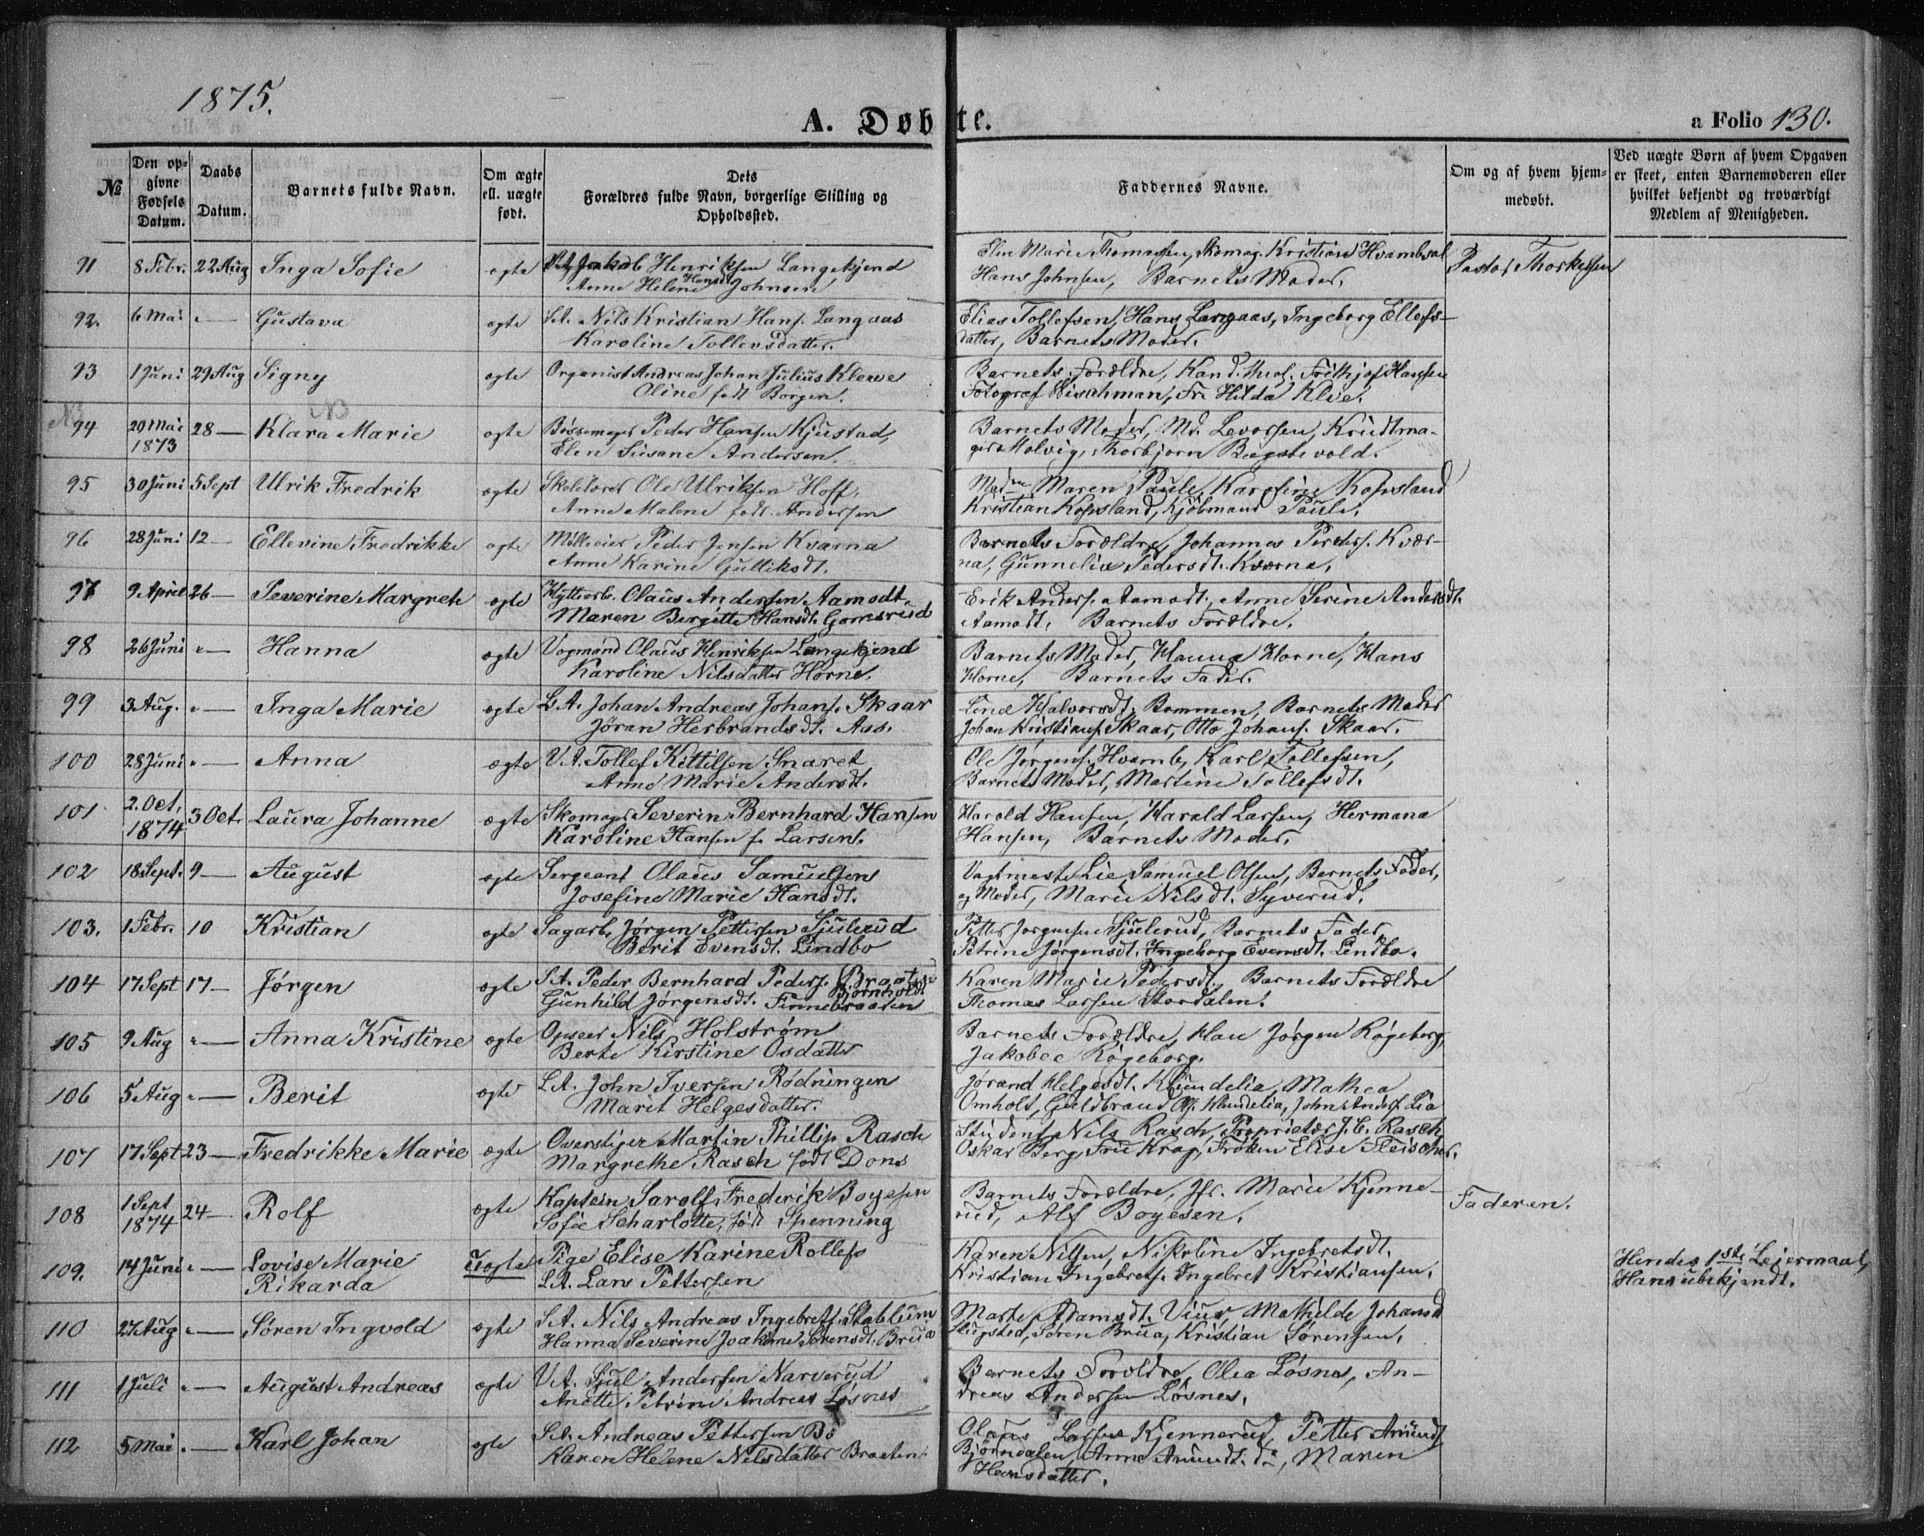 1875.
A. Døbte.
a Folio 130.
№
Den op-
givne
Fødsels
Datum.
Daabs
Datum.
Barnets fulde Navn.
Om ægte
ell. uægte
født.
Dets
Forældres fulde Navn, borgerlige Stilling og
Opholdssted.
Faddernes Navne.
Om og af hvem hjem-
medøbt.
Ved uægte Børn af hvem Opgaven
er skeet, enten Barnemoderen eller
hvilket bekjendt og troværdigt
Medlem af Menigheden.
91 8 Febr. 22 Aug Inga Sofie ægte Jakob Henriksen Langekjend
Anne Helene Hansdt. Johnsen
Elen Marie Thomasen, Skomag. Kristian Hvambsal
Hans Johnsen, Barnets Moder.
Pastor Thorkelsen
92. 6 Mai " — Gustava ægte S.A. Nils Kristian Hans. Langaas
Karoline Tollevsdatter.
Elias Tollefsen, Hans Langaas, Ingeborg Ellefs-
datter, Barnets Moder.
93 1 Juni 29 Aug Signy ægte Organist Andreas Johan Julius Klewe
Oline født Borgen.
Barnets Forældre, Kand. theol. Frithjof Hansen
Fotograf Wischman, Fr. Hilda Klve.
NB
94 20 Mai
1873 28 — Klara Marie ægte Bøssemager Peder Hansen Kjustad,
Elen Susane Andersen.
Barnets Moder, Md. Levorsen, Krudtma-
ger Molvig, Thorbjørn Bigstevold.
95 30 Juni 5 Sept Ulrik Fredrik ægte Skolelærer Ole Ulriksen Hoff,
Anne Malene født Andersen
Maren Paule, Karoline Kopsland
Kristian Kopsland, Kjøbmand Paule.
96 28 Juni 12 — Ellevine Fredrikke ægte Mølleeier Peder Jensen Kværna
Anne Karine Gulliksdt.
Barnets Forældre, Johannes Peders. Kvær-
na, Gunnelia Pedersdt. Kværna.
97 9 April 26 — Severine Margrete ægte Hyttearb. Olaus Andersen Aamodt,
Maren Bergitte Hansdt. Gomsrud
Erik Anders. Aamodt, Anne Serine Andersdt.
Aamodt, Barnets Forældre.
98 26 Juni " — Hanna ægte Vognmand Olaus Henriksen Langekjend
Karoline Nilsdatter Horne.
Barnets Moder, Hanna Horne, Hans
Horne, Barnets Fader.
99 3 Aug. " — Inga Marie ægte S.A. Johan Andreas Johans. Skaar
Jøran Herbrandsdt. Aas.
Line Halvorsdt. Bommen, Barnets Moder
Johan Kristians. Skaar, Otto Johans. Skaar.
100 28 Juni " — Anna ægte V.A. Tollef Kittilsen Snaret
Anne Marie Andersdt.
Ole Jørgens. Hvamb, Karl Tollefsen,
Barnets Moder, Martine Tollefsdt.
101 2. Oct.
1874 3 Oct. Laura Johanne ægte Skomager Severin Bernhard Hansen
Karoline Hansen f. Larsen.
Harald Hansen, Harald Larsen, Hermana
Hansen, Barnets Moder.
102 18 Sept. 9 — August ægte Sergeant Olaus Samuelsen
Josefine Marie Hansdt.
Vagtmester Lie, Samuel Olsen, Barnets Fader,
og Moder, Marie Nilsdt. Syverud.
103. 1 Febr. 10 Kristian ægte Sagarb. Jørgen Pettersen Sjulerud
Berit Evensdt. Lindbo
Petter Jørgensen Sjulerud, Barnets Fader,
Petrine Jørgensdt. Ingeborg Evensdt. Lindbo.
104 17 Sept 17 — Jørgen ægte S.A. Peder Bernhard Peders. Braate
Bornholdt
Gunhild Jørgensdt. Finnebraaten
Karen Marie Pedersdt. Barnets Forældre
Thomas Larsen Stordalen.
105 9 Aug " — Anna Kristine ægte Opseer Nils Holstrøm
Berte Kirstine Osdatter
Barnets Forældre, Hans Jørgen Røgeberg,
Jakobee Røgeberg.
106 5 Aug " — Berit ægte S.A. John Iversen Rødningen
Marit Helgesdatter.
Jørand Helgesdt. Klundelia, Mathea
Omholt, Guldbrand Ols. Klundelia, John Anders. Lia
107 17 Sept 23 — Fredrikke Marie ægte Overstiger Martin Phillip Rasch
Margrethe Rasch født Dons
Student Nils Rasch, Proprietær J. C. Rasch
Oskar Berg, Fru Krag, Frøken Elise Fleischer.
108 1 Sept
1874 24 — Rolf ægte Kaptein Sarolf Frederik Boyesen
Sofie Scharlotte, født Spenning
Barnets Forældre, Jfr. Marie Kjenne-
rud, Alf Boyesen.
Faderen.
109. 14 Juni " — Lovise Marie
Rikarda uægte Pige Elise Karine Rollefs
S.A. Lars Pettersen
Karen Nilsen, Nikoline Ingebretsdt.
Kristian Ingebrets. Ingebret Kristiansen.
Hendes 1ste Leiermaal,
Hans ubekjendt.
110 27 Aug " — Søren Ingvold ægte S.A. Nils Andreas Ingebrets. Stablum
Hanna Severine Joakime Sørensdt. Brua
Marte Adamsdt. Viur, Mathilde Johansd
Slugsted, Søren Brua, Kristian Sørensen.
111 1 Juli " — August Andreas ægte V.A. Sjul Andersen Narverud
Anette Petrine Andreas Løsnes
Barnets Forældre, Olea Løsnes, An-
dreas Andersen Løsnes.
112 5 Mai " — Karl Johan ægte S.A. Andreas Pettersen Bø
Karen Helene Nilsdatter Braaten.
Olaus Larsen Kjennerud, Petter Amund
Bjørndalen, Anne Amundt. do, Maren
Hansdatter.